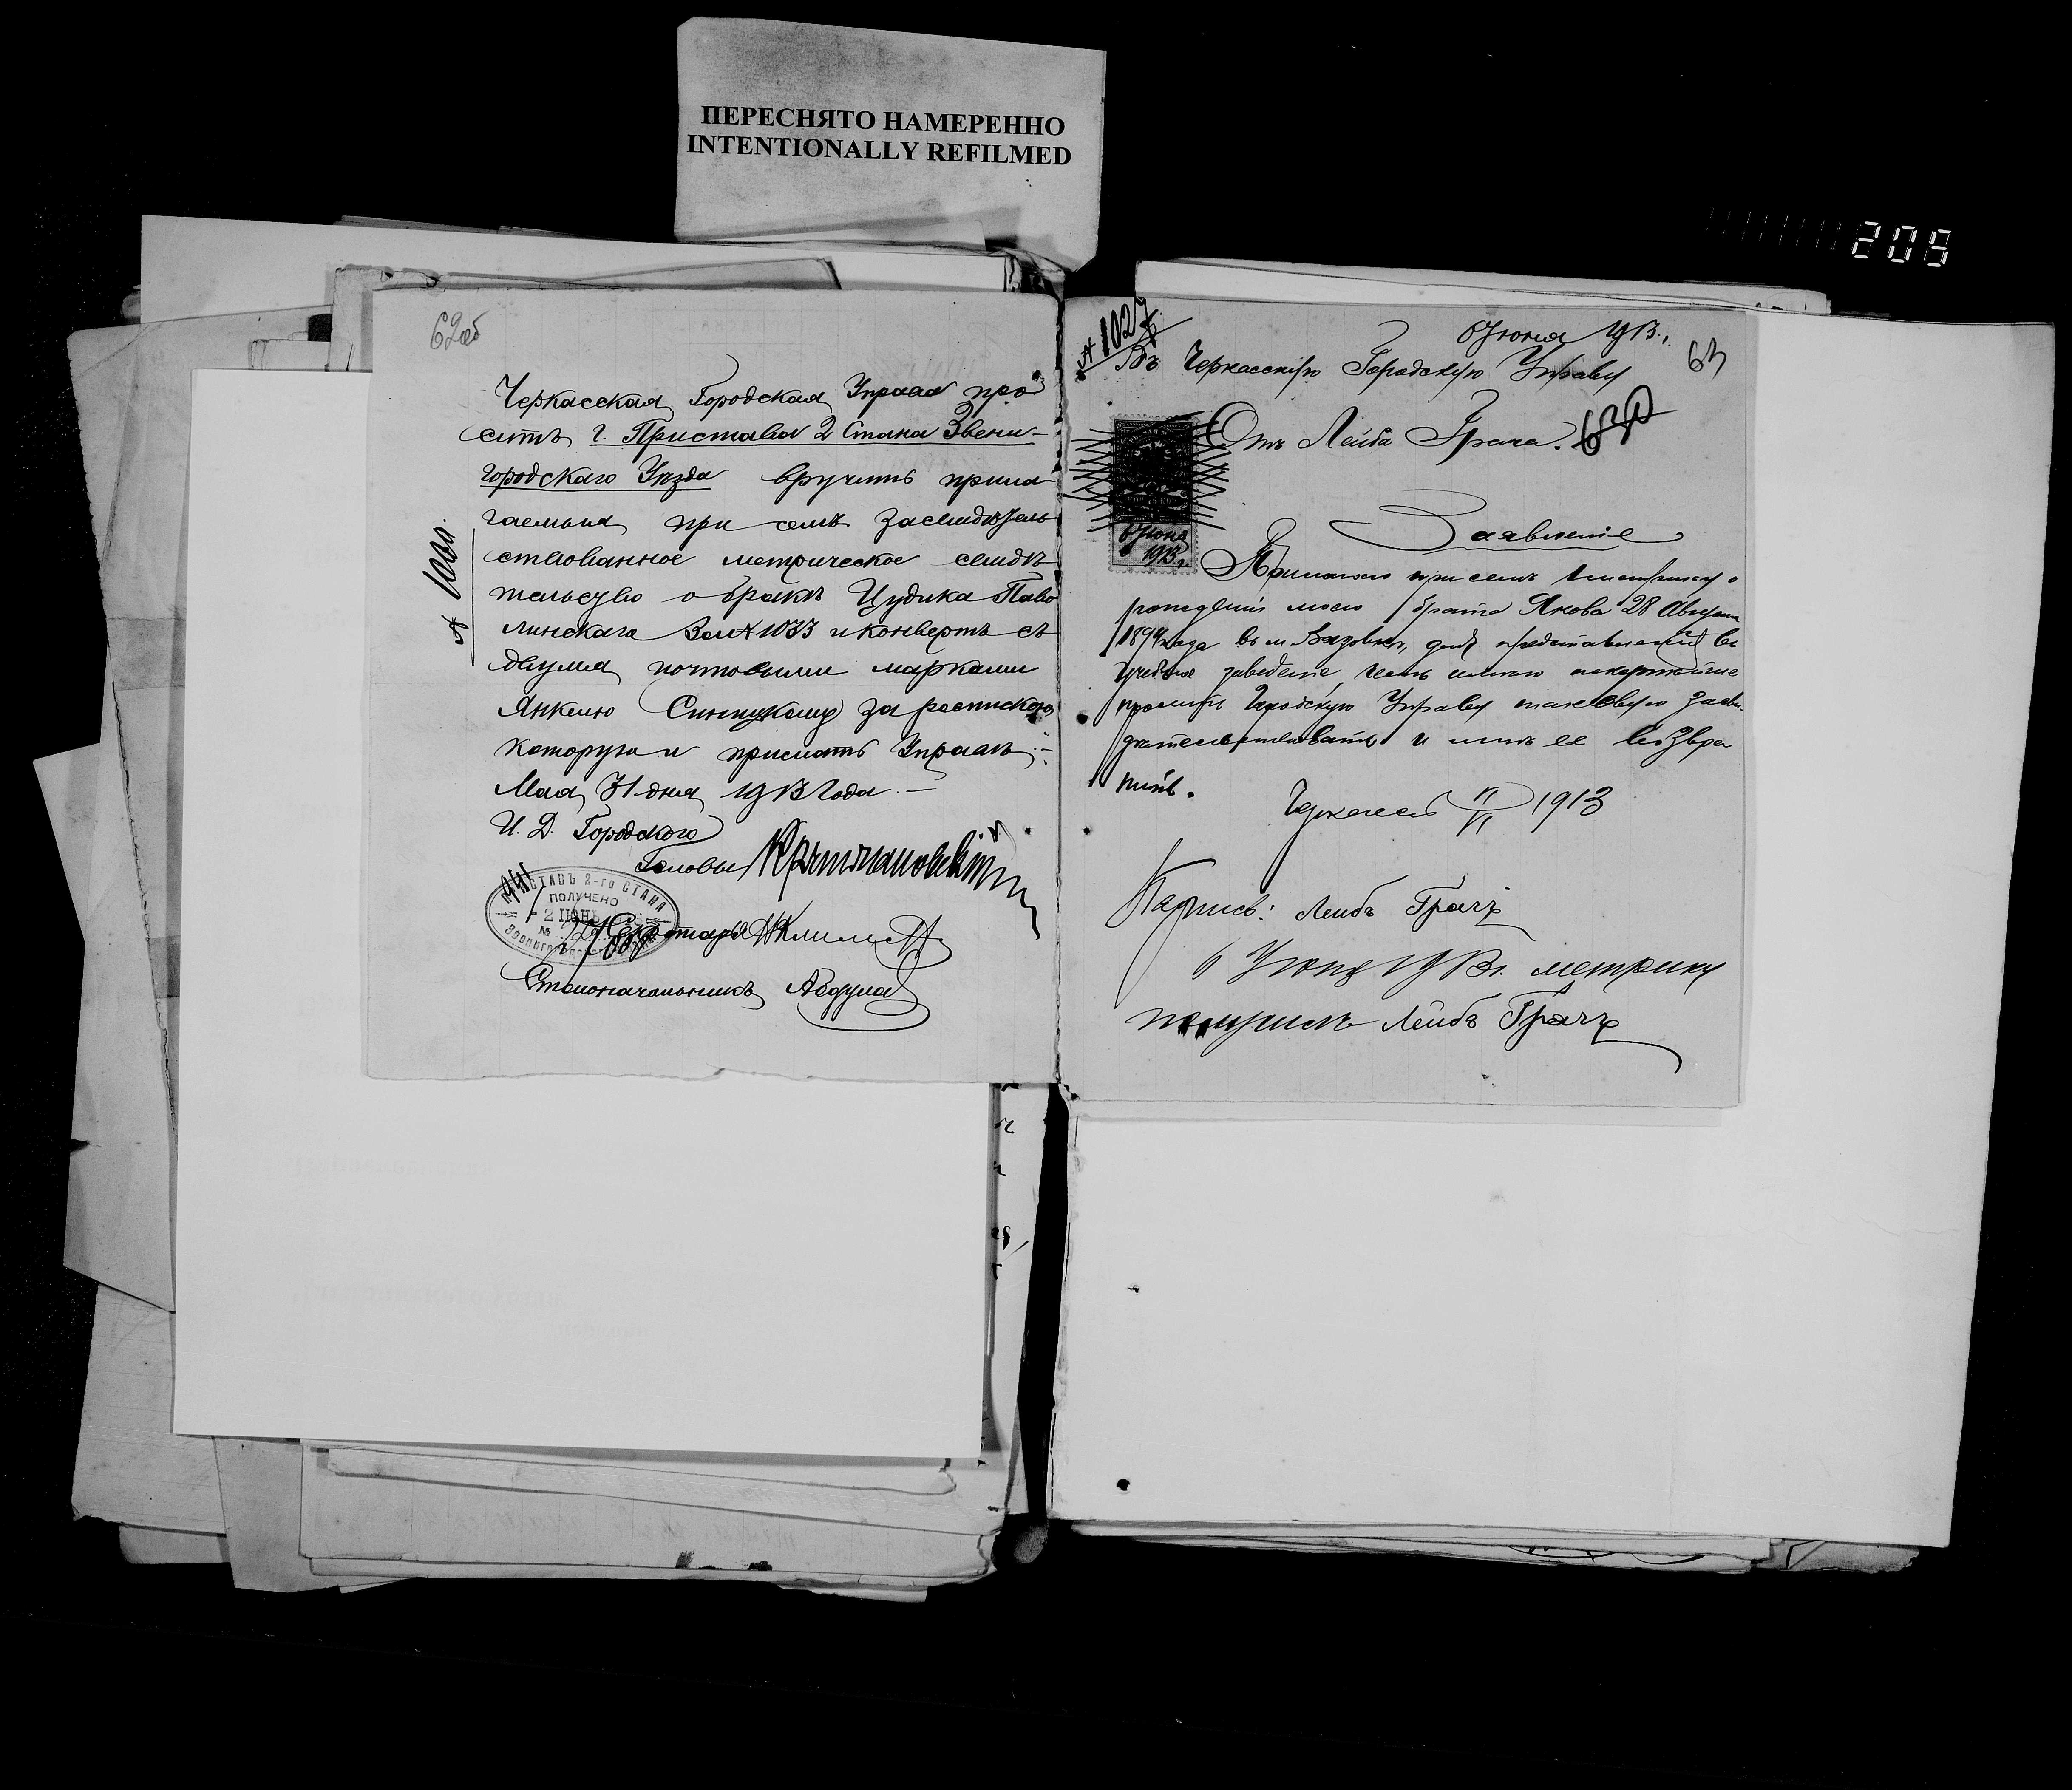 ПЕРЕСНЯТО НАМЕРЕННО
INTENTIONALLY REFILMED
209
62об
Черкасская Городская Управа про-
ситъ г. Пристава 2 Стана Звени-
городскаго Уѣзда вручить прила-
гаемыя при семъ засвидѣтель-
ствованное метрическое свидѣ-
тельство о бракѣ Цудика Паво
линскаго за № 1033 и конвертъ съ
двумя почтовыми марками
Янкелю за роспискою
которую и прислать Управѣ.-
Мая 31 дня 1913 года.-
И. Д. Городского
Головы
ПРИСТАВЪ 2-го СТАНА
ПОЛУЧЕНО
2 ІЮНЬ
№
Секретарь
Столоначальникъ
№ 1027
6 Іюня 1913 г.
63
Въ Черкасскую Городскую Управу
Отъ Лейба Грача.
Заявленіе
6 Іюня
1913 г.
Прилагаю при семъ метрику о
рожденіи моего брата Якова 28 Августа
1894 года въ м. для представленія въ
учебное заведеніе, честь имѣю покорнѣйше
просить Городскую Управу таковую засви-
дѣтельствовать и мнѣ ее возвра
тить.
Черкассы 1913
Лейбъ Грачъ
6 Іюня 1913 г. метрику
получилъ Лейбъ Грачъ